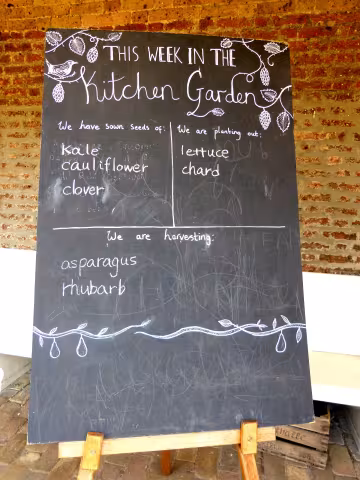 THIS WEEK IN THE
Kitchen Garden
We have sown seeds of:
kale
cauliflower
clover
We are planting out:
lettuce
chard
We are harvesting:
asparagus
rhubarb